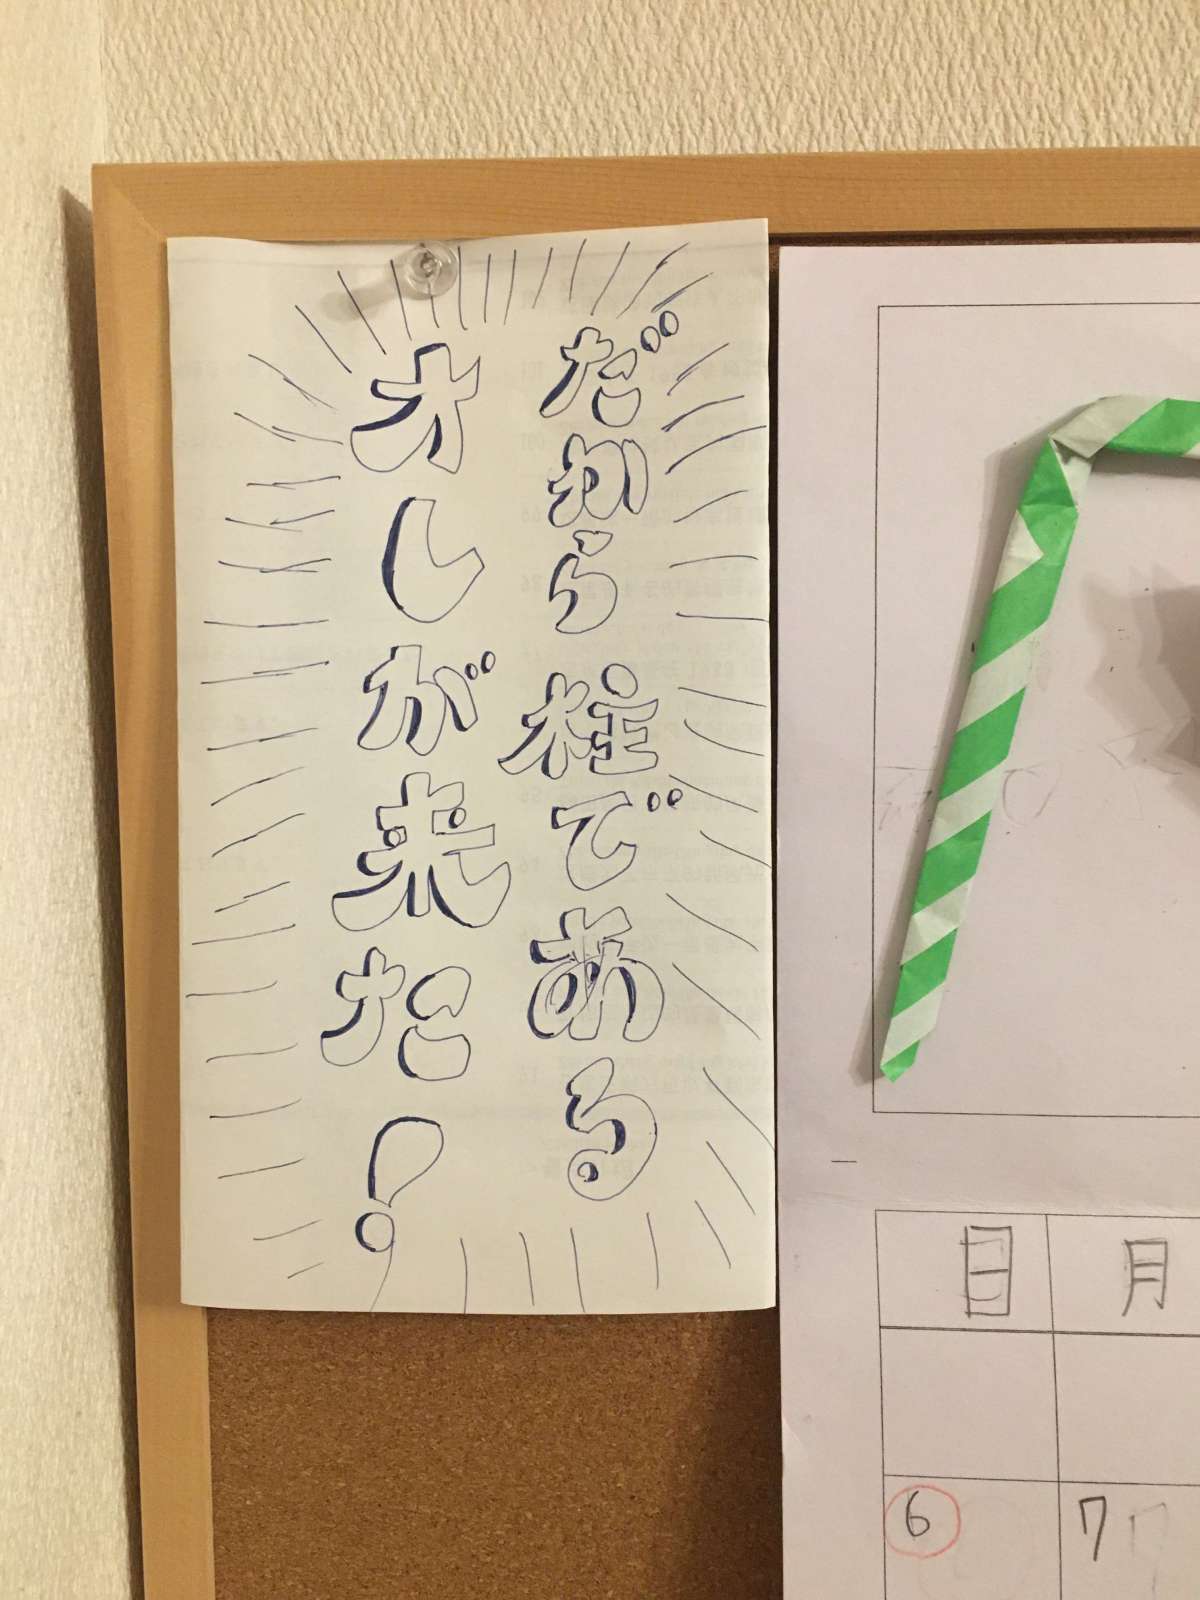 だから柱である
オしが来た!
日 月
6 7